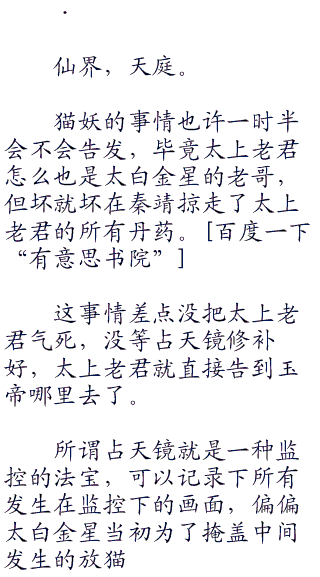 .
仙界，天庭。
猫妖的事情也许一时半
会不会告发，毕竟太上老君
怎么也是太白金星的老哥，
但坏就坏在秦靖掠走了太上
老君的所有丹药。[百度一下
“有意思书院”]
这事情差点没把太上老
君气死，没等占天镜修补
好，太上老君就直接告到玉
帝哪里去了。
所谓占天镜就是一种监
控的法宝，可以记录下所有
发生在监控下的画面，偏偏
太白金星当初为了掩盖中间
发生的放猫